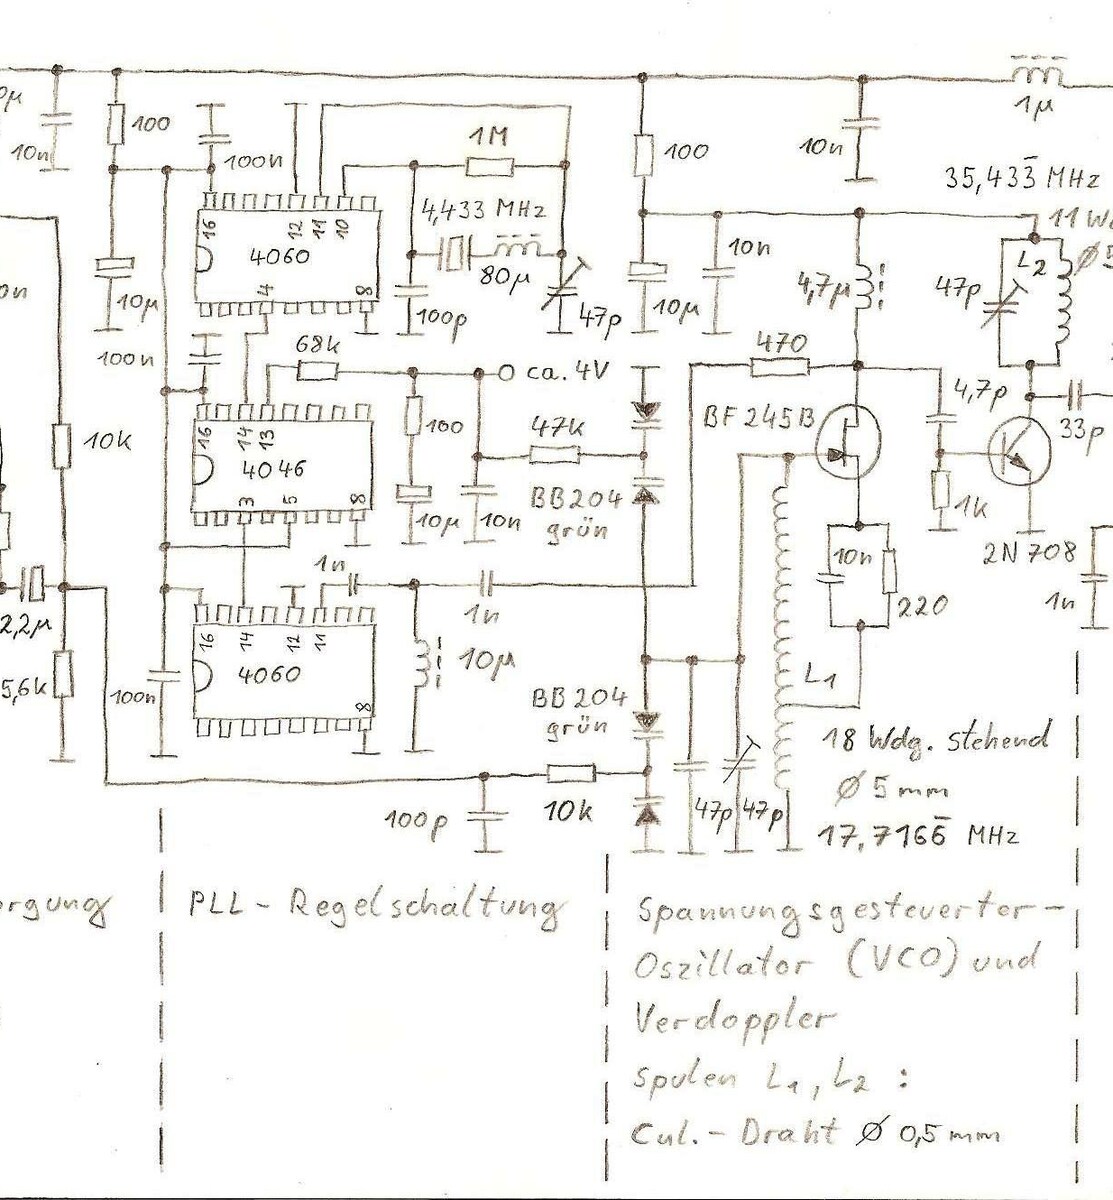 1µ
100
10n
100n
1M
100
10n
35,433̅ MHz
16
12
11
10
4,433 MHz
11
4060
80µ
10n
4,7µ
L2
47p
10µ
4
8
100p
47p
10µ
100n
68k
ca. 4V
470
4,7p
10k
16
14
13
100
47k
BF 245B
33p
4046
3
5
8
10µ
10n
BB 204
grün
1k
2N 708
1n
1n
10n
220
1n
2,2µ
16
14
12
11
4060
10µ
5,6k
100n
8
BB 204
grün
L1
18 Wdg. stehend
Ø 5 mm
17,7166̅ MHz
100p
10k
47p
47p
PLL - Regelschaltung
Spannungsgesteuerter -
Oszillator (VCO) und
Verdoppler
Spulen L1, L2 :
CuL.- Draht Ø 0,5 mm